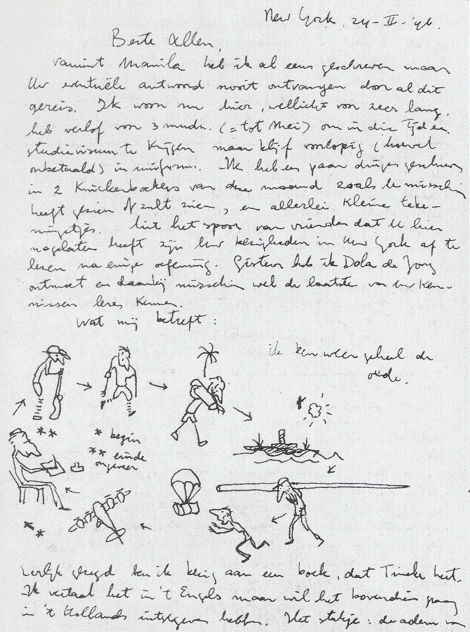 New York, 24-II-'46.
Beste Allen,
vanuit Manila heb ik al eens geschreven maar
Uw eventuele antwoord nooit ontvangen door al dit
gereis. Ik woon nu hier, wellicht voor zeer lang,
heb verlof voor 3 mndn. (= tot Mei) om in die tijd een
studievisum te krijgen maar blijf voorlopig (hoewel
onbetaald) in uniform. Ik heb een paar dingen
in 2 Knickerbockers van deze maand zoals U misschien
heeft gezien of zult zien, en allerlei kleine teke-
ningetjes. Uit het spoor van vrienden dat U hier
nagelaten heeft zijn Uw bezigheden in New York af te
lezen na enige oefening. Gisteren heb ik Dola de Jong
ontmoet en daarbij misschien wel de laatste van uw ken-
nissen leren kennen.
Wat mij betreft:
ik ben weer geheel de
oude.
* begin
** einde
ongeveer
Eerlijk gezegd ben ik bezig aan een boek, dat Tineke heet.
Ik vertaal het in 't Engels maar wil het bovendien graag
in 't Hollands uitgegeven hebben. Het stukje: de adem van